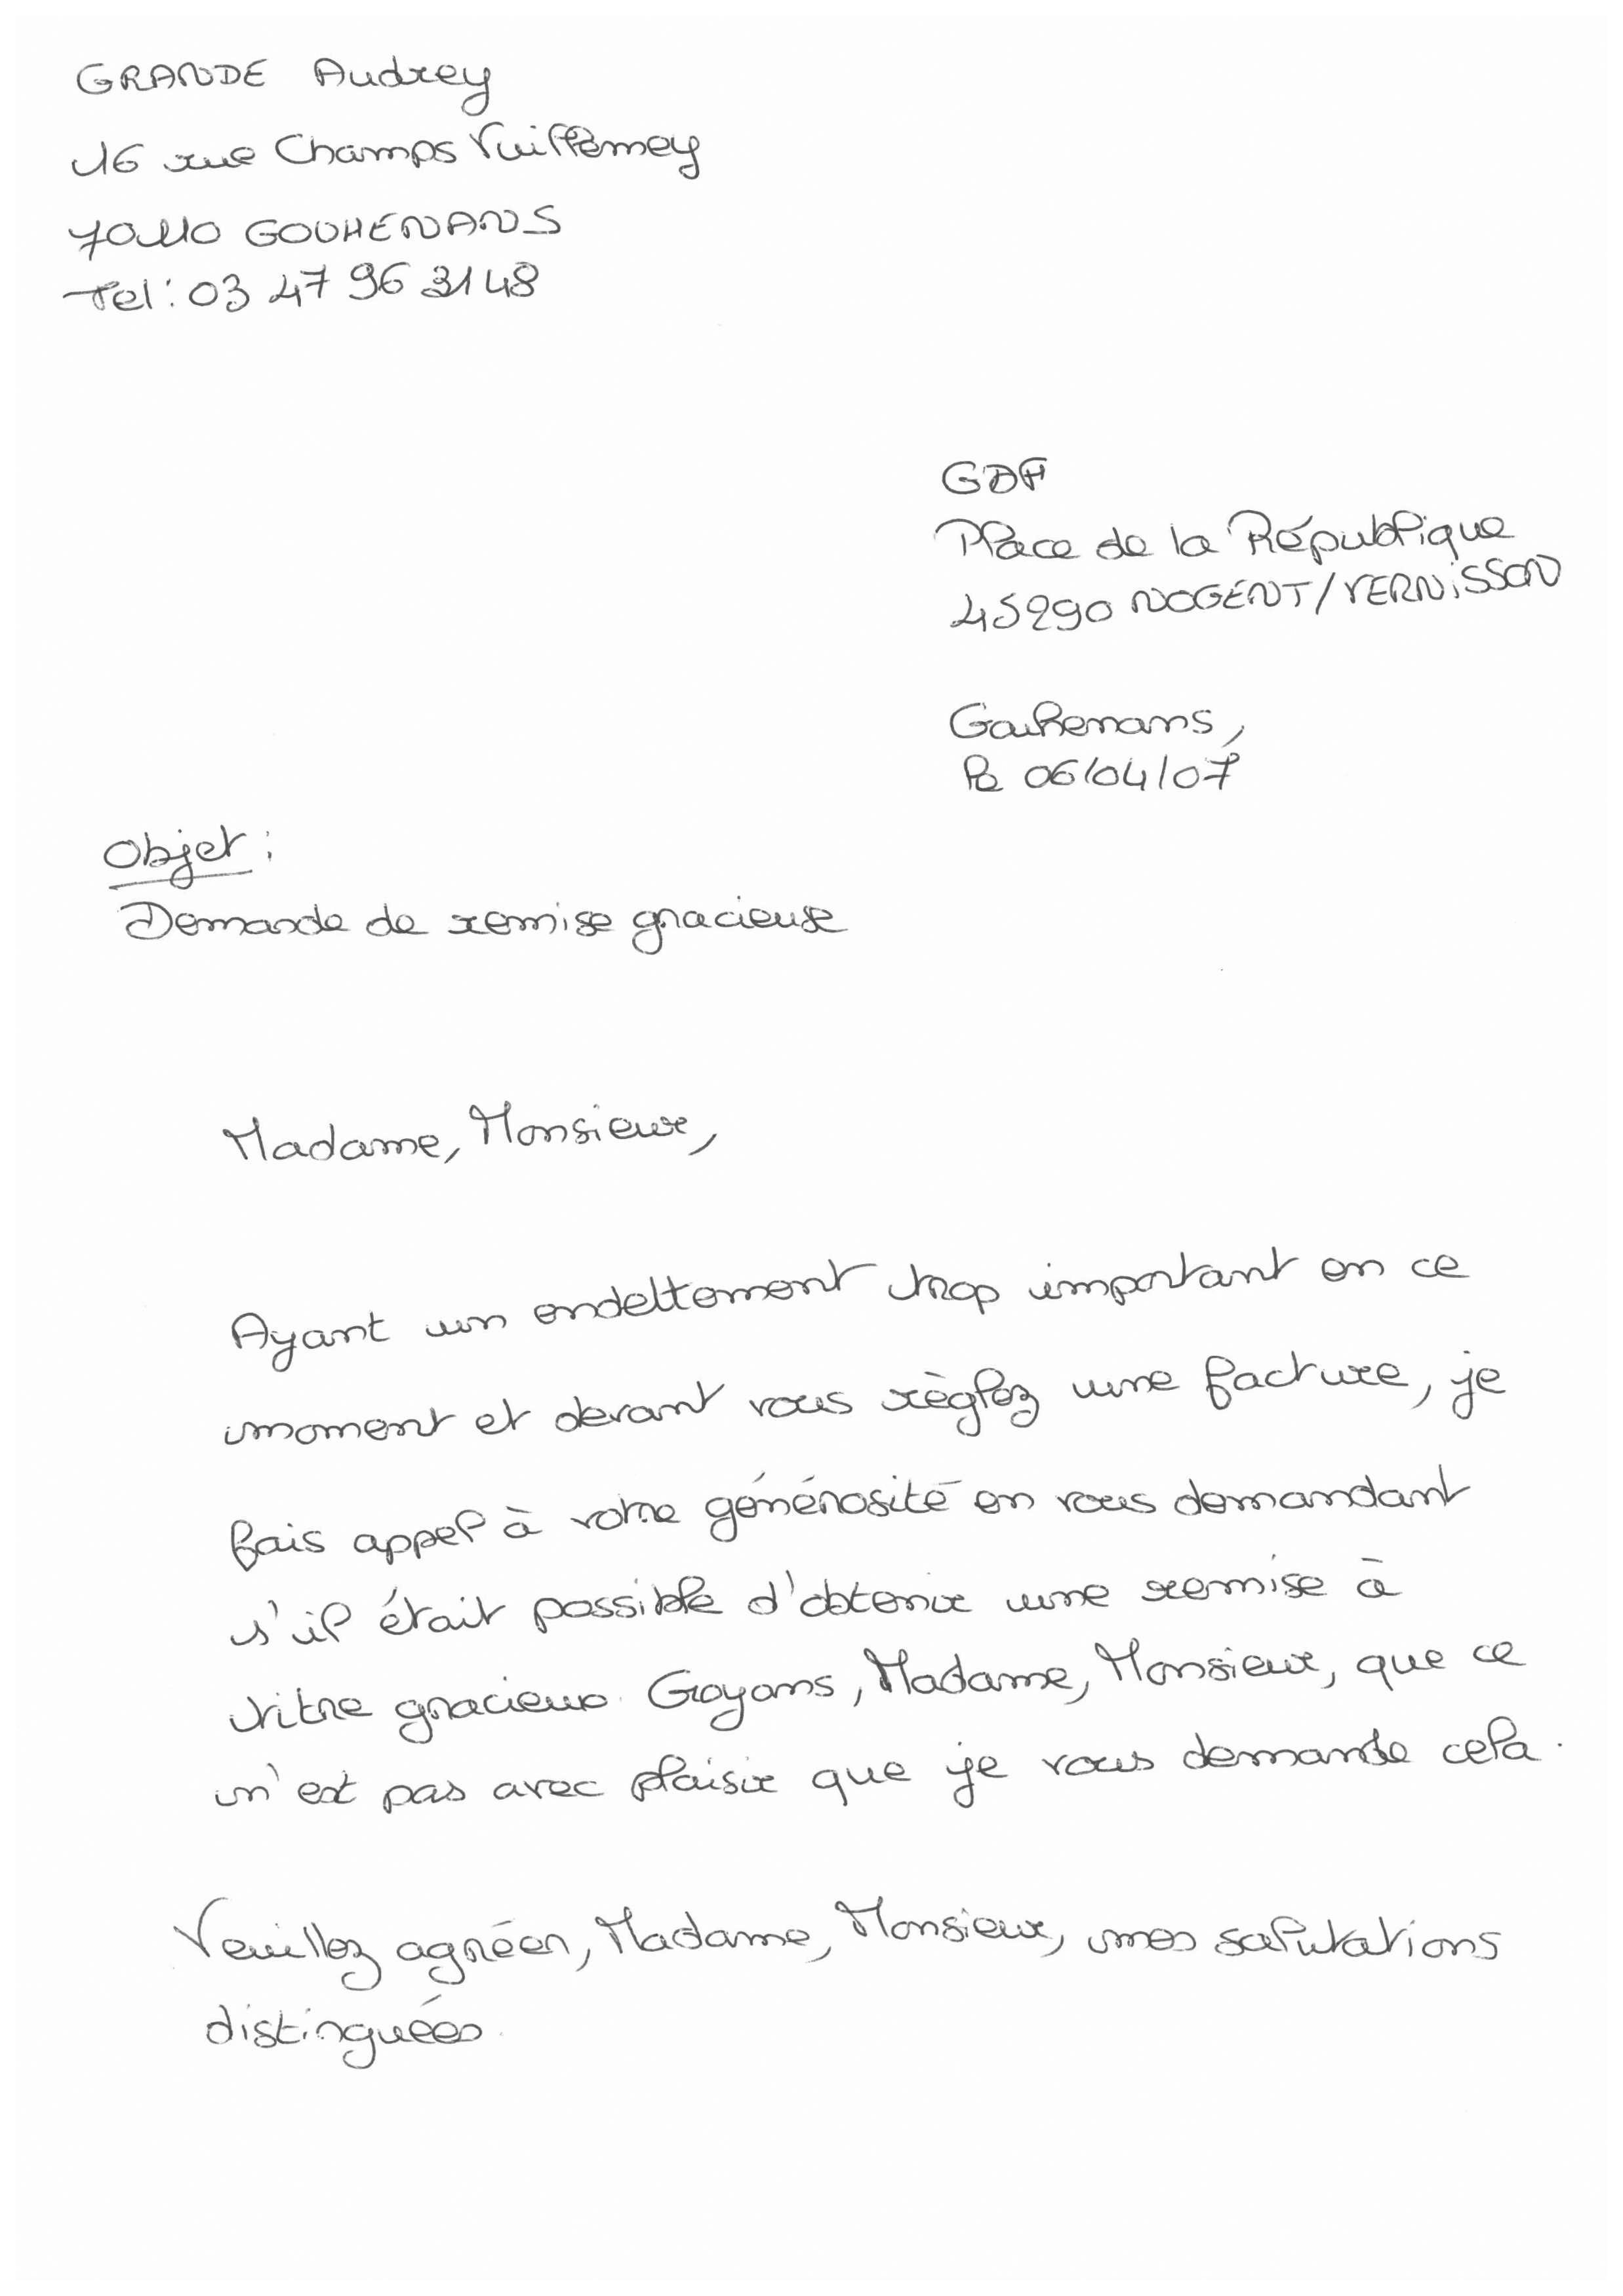 GRANDE Audrey
16 rue Champs Vuillemey
70110 GOUHENANS
Tel : 03 47 96 31 48
GDF
Place de la République
45290 NOGENT/VERNISSON
Gouhenans,
le 06/04/07
Objet :
Demande de remise gracieuse
Madame, Monsieur,
Ayant un endettement trop important en ce
moment et devant vous règlez une facture, je
fais appel à votre générosité en vous demandant
s'il était possible d'obtenir une remise à
titre gracieux. Croyons, Madame, Monsieur, que ce
n'est pas avec plaisir que je vous demande cela.
Veuillez agréer, Madame, Monsieur, mes salutations
distinguées.